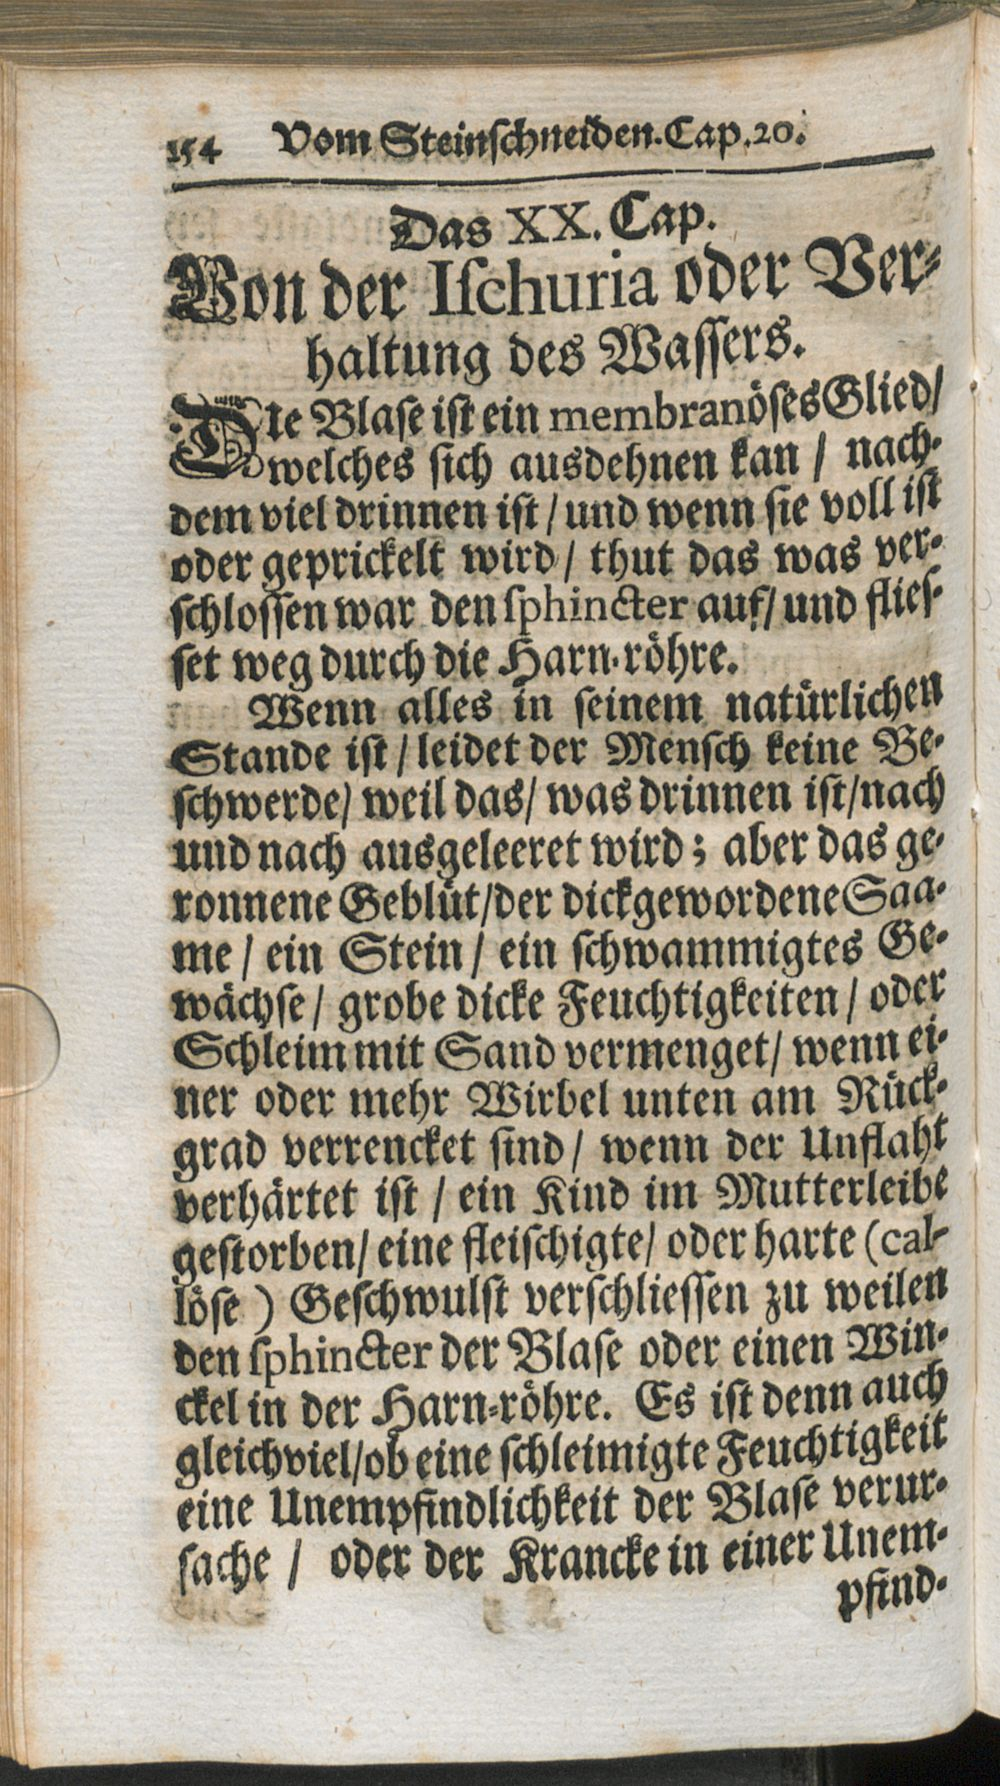 154 Vom Steinschneiden. Cap. 20.
Das XX. Cap.
Von der Ischuria oder Ver-
haltung des Wassers.
Die Blase ist ein membranöses Glied/
welches sich ausdehnen kan / nach-
dem viel drinnen ist / und wenn sie voll ist
oder geprickelt wird / thut das was ver-
schlossen war den sphincter auf / und flies-
set weg durch die Harn-röhre.
Wenn alles in seinem natürlichen
Stande ist / leidet der Mensch keine Be-
schwerde / weil das / was drinnen ist / nach
und nach ausgeleeret wird; aber das ge-
ronnene Geblüt / der dickgewordene Saa-
me / ein Stein / ein schwammigtes Ge-
wächse / grobe dicke Feuchtigkeiten / oder
Schleim mit Sand vermenget / wenn ei-
ner oder mehr Wirbel unten am Rück-
grad verrencket sind / wenn der Unflaht
verhärtet ist / ein Kind im Mutterleibe
gestorben / eine fleischigte / oder harte (cal-
löse) Geschwulst verschliessen zu weilen
den sphincter der Blase oder einen Win-
ckel in der Harn-röhre. Es ist denn auch
gleichviel / ob eine schleimigte Feuchtigkeit
eine Unempfindlichkeit der Blase verur-
sache / oder der Krancke in einer Unem-
pfind-